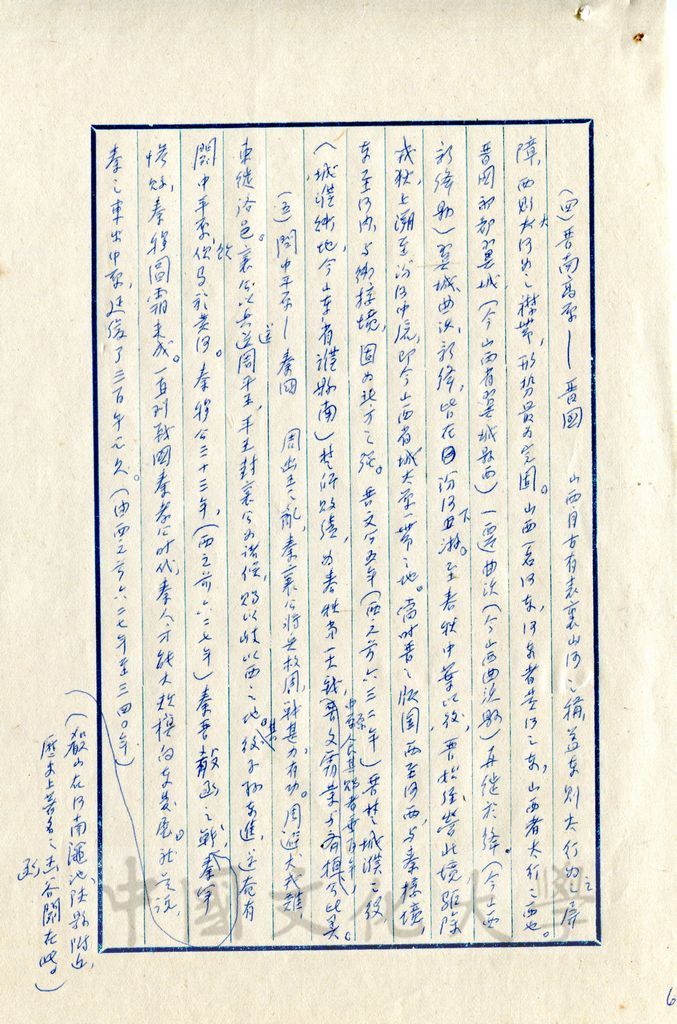 (四)晉南高原——晉國 山西自古有表裏山河之稱,蓋東則太行為之屏
障,西則大河為之襟帶,形勢最為完固。山西一名河東,河東者黃河之東,山西者太行之西也。
晉國初都翼城(今山西省翼城縣西)一遷曲沃(今山西曲沃縣)再徙於絳。(今山西
新絳縣)翼城曲沃新絳,皆在汾河下游。至春秋中葉以後,晉
戎狄,上溯至汾河中流,即今山西省城太原一帶之地。當時晉之版圖西至河西,與秦接境,
東至河內,與衛接境,固為北方之強。晉文公五年(西元前六三二年)晉楚城濮之役
(城濮衛地,今山東省濮縣南)楚師敗績,為春秋第一大戰,晉文霸業
中原
(五)關中平原——秦國 周幽王之亂,秦襄公將兵救周,戰甚力有功。周避犬戎難
東徙洛邑。襄公以兵送周平王,平王封襄公為諸侯,賜以歧以西之地。其後子孫東進,遂奄有
關中平原,飲馬於黃河。秦穆公三十三年,(西元前六二七年)秦晉殽函之戰,秦軍
慘敗,秦穆圖霸未成。一直到戰國秦孝公時代,秦人才能大規模向東發展。
秦之東出中原,延後了三百年之久。(由西元前六二七年至三四〇年)
(殽山在河南澠池陝縣附近,
歷史上著名之函谷關在此。)
中國文化大學
6